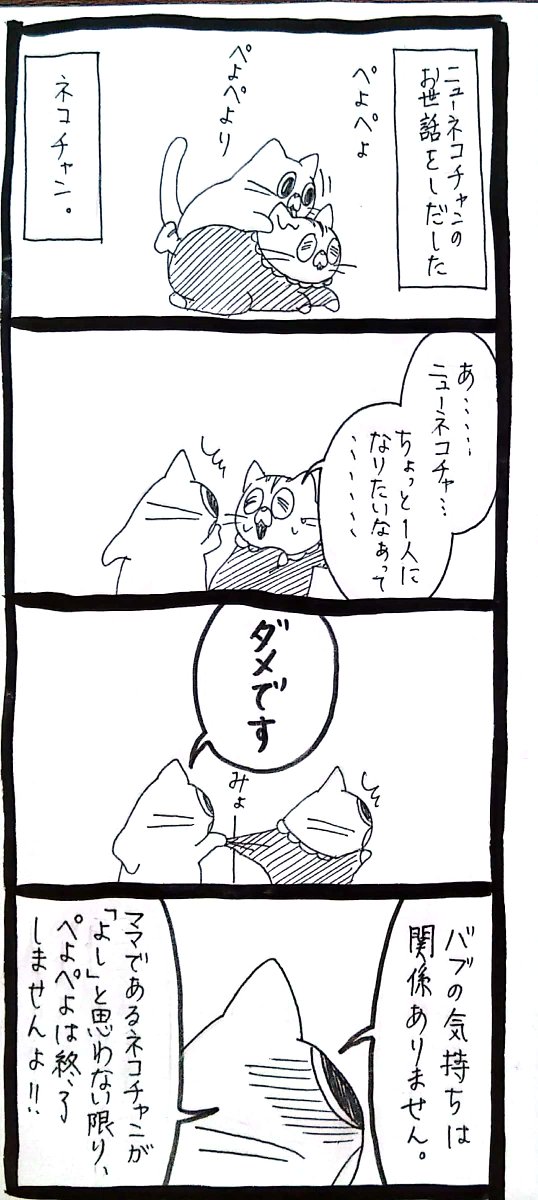 ニューネコチャンの
お世話をしだした
ぺよぺよ
ぺよぺより
ネコチャン。
あ……
ニューネコチャ…
ちょっと1人に
なりたいなぁって
……
ダメです
みょー
バブの気持ちは
関係ありません。
ママであるネコチャンが
「よし」と思わない限り、
ぺよぺよは終了
しませんよ!!